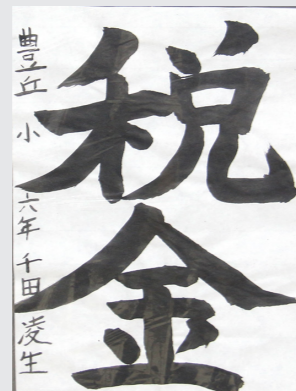 税金
豊丘小 六年 千田凌生